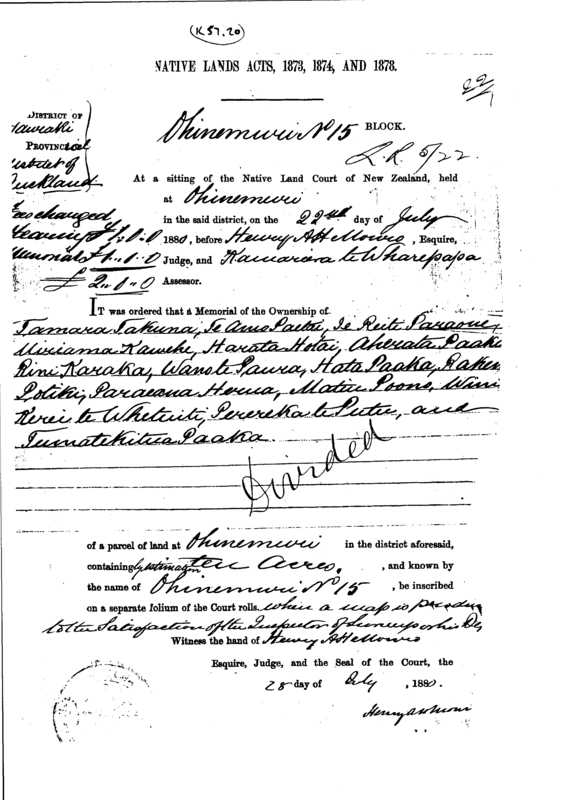 (K 57.20)
NATIVE LANDS ACTS, 1873, 1874, AND 1878.
22/1
DISTRICT OF
Hauraki
PROVINCial
District of
Auckland
Ohinemuri No 15 BLOCK.
L.R. 5/22.
At a sitting of the Native Land Court of New Zealand, held
at Ohinemuri
in the said district, on the 22nd day of July
1880, before Henry A H Monro, Esquire,
Judge, and Kamarera te Wharepapa
Assessor.
Fees charged
Hearing £1.0.0
Memorial £1.0.0
£2.0.0
IT was ordered that a Memorial of the Ownership of
Tamara Takuna, Te Paraone,
Miriama Kawehe, Harata Hotai, Aherata Paaka
Rini Karaka, Paura, Hata Paaka,
Potiki, Paraeana Matiu Poono, Wini
Kerei te Whetuiti, Perereka te and
Tumatekitua Paaka.
Divided
of a parcel of land at Ohinemuri in the district aforesaid,
containing by estimation ten Acres, , and known by
the name of Ohinemuri No 15, be inscribed
on a separate folium of the Court rolls when a map is
to the Satisfaction of the Inspector of Surveys or his
Witness the hand of Henry A H Monro
Esquire, Judge, and the Seal of the Court, the
28 day of July, 1880.
Henry A H Monro